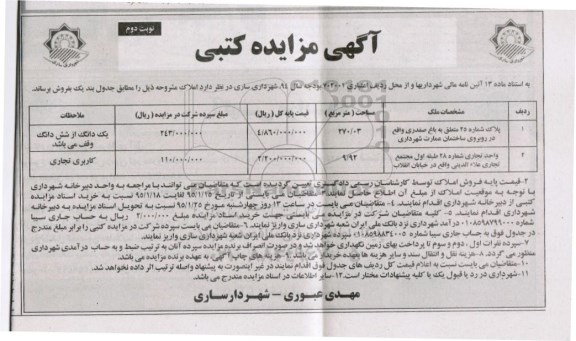 نوبت دوم
آگهی مزایده کتبی
به استناد ماده ۱۳ آئین نامه مالی شهرداریها و از محل ردیف اعتباری بودجه سال ۹۴، شهرداری ساری در نظر دارد املاک مشروحه ذیل را مطابق جدول بند یک بفروش برساند.
ردیف مشخصات ملک مساحت (متر مربع) قیمت پایه کل (ریال) مبلغ سپرده شرکت در مزایده (ریال) ملاحظات
۱ پلاک شماره ۲۵ متعلق به باغ صفدری واقع در روبروی ساختمان عمارت شهرداری ۲۷۰/۰۳ ۴/۸۶۰/۰۰۰/۰۰۰ ۲۴۳/۰۰۰/۰۰۰ یک دانگ از شش دانگ وقف می باشد
۲ واحد تجاری شماره ۲۸ طبقه اول مجتمع تجاری علاء الدینی واقع در خیابان انقلاب ۹/۹۲ ۲/۲۰۰/۰۰۰/۰۰۰ ۱۱۰/۰۰۰/۰۰۰ کاربری تجاری
۲-قیمت پایه فروش املاک توسط کارشناسان رسمی دادگستری تعیین گردیده است که متقاضیان می توانند با مراجعه به واحد دبیرخانه شهرداری
با توجه به موقعیت املاک از مبلغ آن اطلاع حاصل نمایند. ۳-متقاضیان می بایستی از تاریخ لغایت ۹۵/۱/۱۸ نسبت به خرید اسناد مزایده
کتبی از دبیرخانه شهرداری اقدام نمایند. ۴-متقاضیان می بایست در ساعت ۱۳ روز چهارشنبه مورخ نسبت به تحویل اسناد مزایده به دبیرخانه
شهرداری اقدام نمایند. ۵-کلیه متقاضیان شرکت در مزایده می بایستی جهت خرید اسناد مزایده مبلغ ۲/۰۰۰/۰۰۰ ریال به حساب جاری سیبا
شماره در آمد شهرداری نزد بانک ملی ایران شعبه شهرداری ساری واریز نمایند. ۶-متقاضیان می بایست سپرده شرکت در مزایده کتبی را برابر مبلغ مندرج
در جدول فوق به حساب جاری سیبا شماره سپرده شهرداری نزد بانک ملی ایران شعبه شهرداری ساری واریز نمایند.
۷-سپرده نفرات اول، دوم و سوم تا پرداخت بهای زمین نگهداری خواهد شد و در صورت انصراف برنده مزایده سپرده آنان به ترتیب ضبط و به حساب درآمدی شهرداری
منظور می گردد. ۸-هزینه نقل و انتقال سند و سایر هزینه ها بعهده خریدار می باشد. ۹-هزینه های چاپ آگهی به عهده برنده مزایده می باشد.
۱۰-متقاضیان می بایست نسبت به اعلام قیمت کل ردیف های جدول فوق اقدام نمایند در غیر اینصورت به پیشنهاد واصله ترتیب اثر داده نخواهد شد.
۱۱-شهرداری در رد یا قبول یک یا کلیه پیشنهادات مختار است. ۱۲-سایر اطلاعات در اسناد مزایده مندرج می باشد.
مهدی عبوری – شهردار ساری